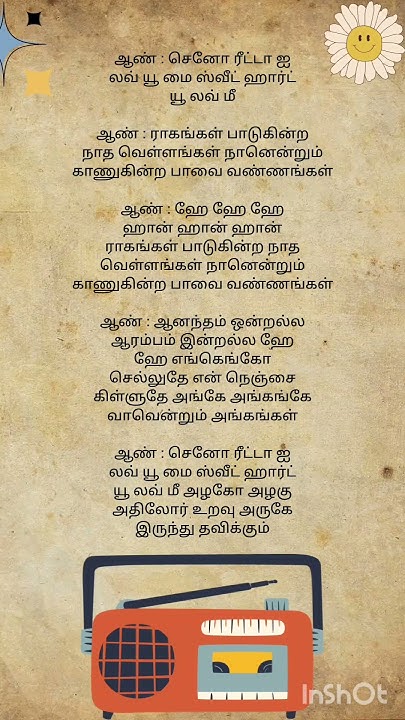 ஆண் : செனோ ரீட்டா ஐ
லவ் யூ மை ஸ்வீட் ஹார்ட்
யூ லவ் மீ
ஆண் : ராகங்கள் பாடுகின்ற
நாத வெள்ளங்கள் நானென்றும்
காணுகின்ற பாவை வண்ணங்கள்
ஆண் : ஹே ஹே ஹே
ஹான் ஹான் ஹான்
ராகங்கள் பாடுகின்ற நாத
வெள்ளங்கள் நானென்றும்
காணுகின்ற பாவை வண்ணங்கள்
ஆண் : ஆனந்தம் ஒன்றல்ல
ஆரம்பம் இன்றல்ல ஹே
ஹே எங்கெங்கோ
செல்லுதே என் நெஞ்சை
கிள்ளுதே அங்கே அங்கங்கே
வாவென்றும் அங்கங்கள்
ஆண் : செனோ ரீட்டா ஐ
லவ் யூ மை ஸ்வீட் ஹார்ட்
யூ லவ் மீ அழகோ அழகு
அதிலோர் உறவு அருகே
இருந்து தவிக்கும்
InShOt